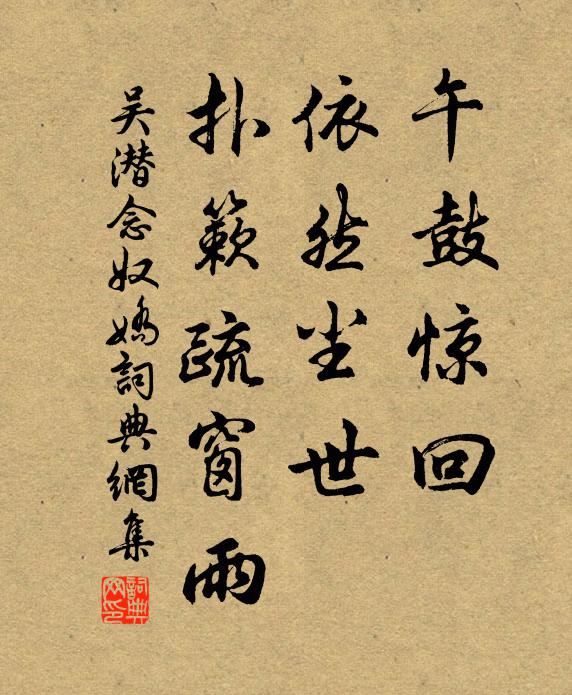 午鼓惊回
依然尘世
扑簌疏窗雨
吴潜念奴嬌詞典網集
詞典
网印